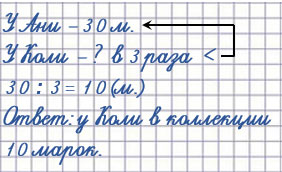 У Ани – 30 м.
У Коли – ? в 3 раза <
30 : 3 = 10 (м.)
Ответ: у Коли в коллекции
10 марок.